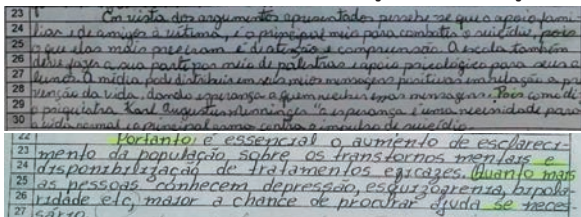 23 Em vista dos argumentos apresentados percebe-se que o apoio fami-
24 liar e de amigos à vítima, é o principal meio para combater o suicídio, pois
25 o que elas mais precisam é de atenção e compreensão. A escola também
26 deve fazer a sua parte por meio de palestras e apoio psicológico para seus a
27 lunos. A mídia pode distribuir em seus meios mensagens positivas em relação a pre
28 venção da vida, dando esperança a quem recebe essa mensagem. Pois como di
29 o psiquiatra Karl Augustus Menninger "a esperança é uma necessidade para
30 a vida normal e o principal arma contra o impulso de suicídio.
22 Portanto é essencial o aumento de esclareci-
23 mento da população, sobre os transtornos mentais e
24 disponibilização de tratamentos eficazes. Quanto mais
25 as pessoas conhecem, depressão, esquizofrenia, bipola-
26 ridade etc, maior a chance de procurar ajuda se neces-
27 sário